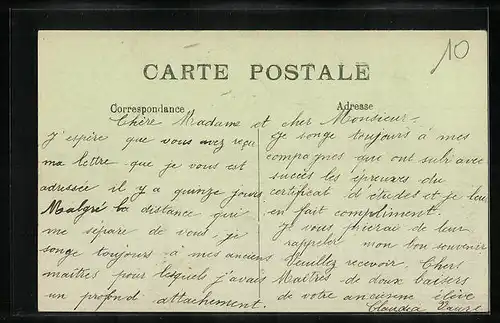 10
CARTE POSTALE
Correspondance
Adresse
Chère Madame et cher Monsieur =
J'espère que vous avez reçu
ma lettre que je vous est
adressée il y a quinze jours
Malgré la distance qui
me sépare de vous, je
songe toujours à mes anciens
maîtres pour lesquels j'avais
un profond attachement.
Je songe toujours à mes
compagnes que ont subi avec
succès les épreuves du
certificat d'études et je leu
en fait compliment.
Je vous prierai de leur
rappeler mon bon souvenir
Veuillez recevoir Chers
Maîtres de doux baisers
de votre ancienne élève
Claudia